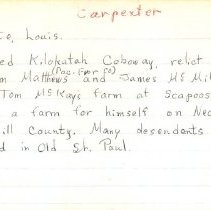 Carpenter
e, Louis.
ed Kilokutah Coboway, relict
(Pac. Fur Co)
m Matthews and James McMil
Tom McKays farm at Scapoos
a farm for himself on Nec
ill County. Many descendents
d in Old St. Paul.